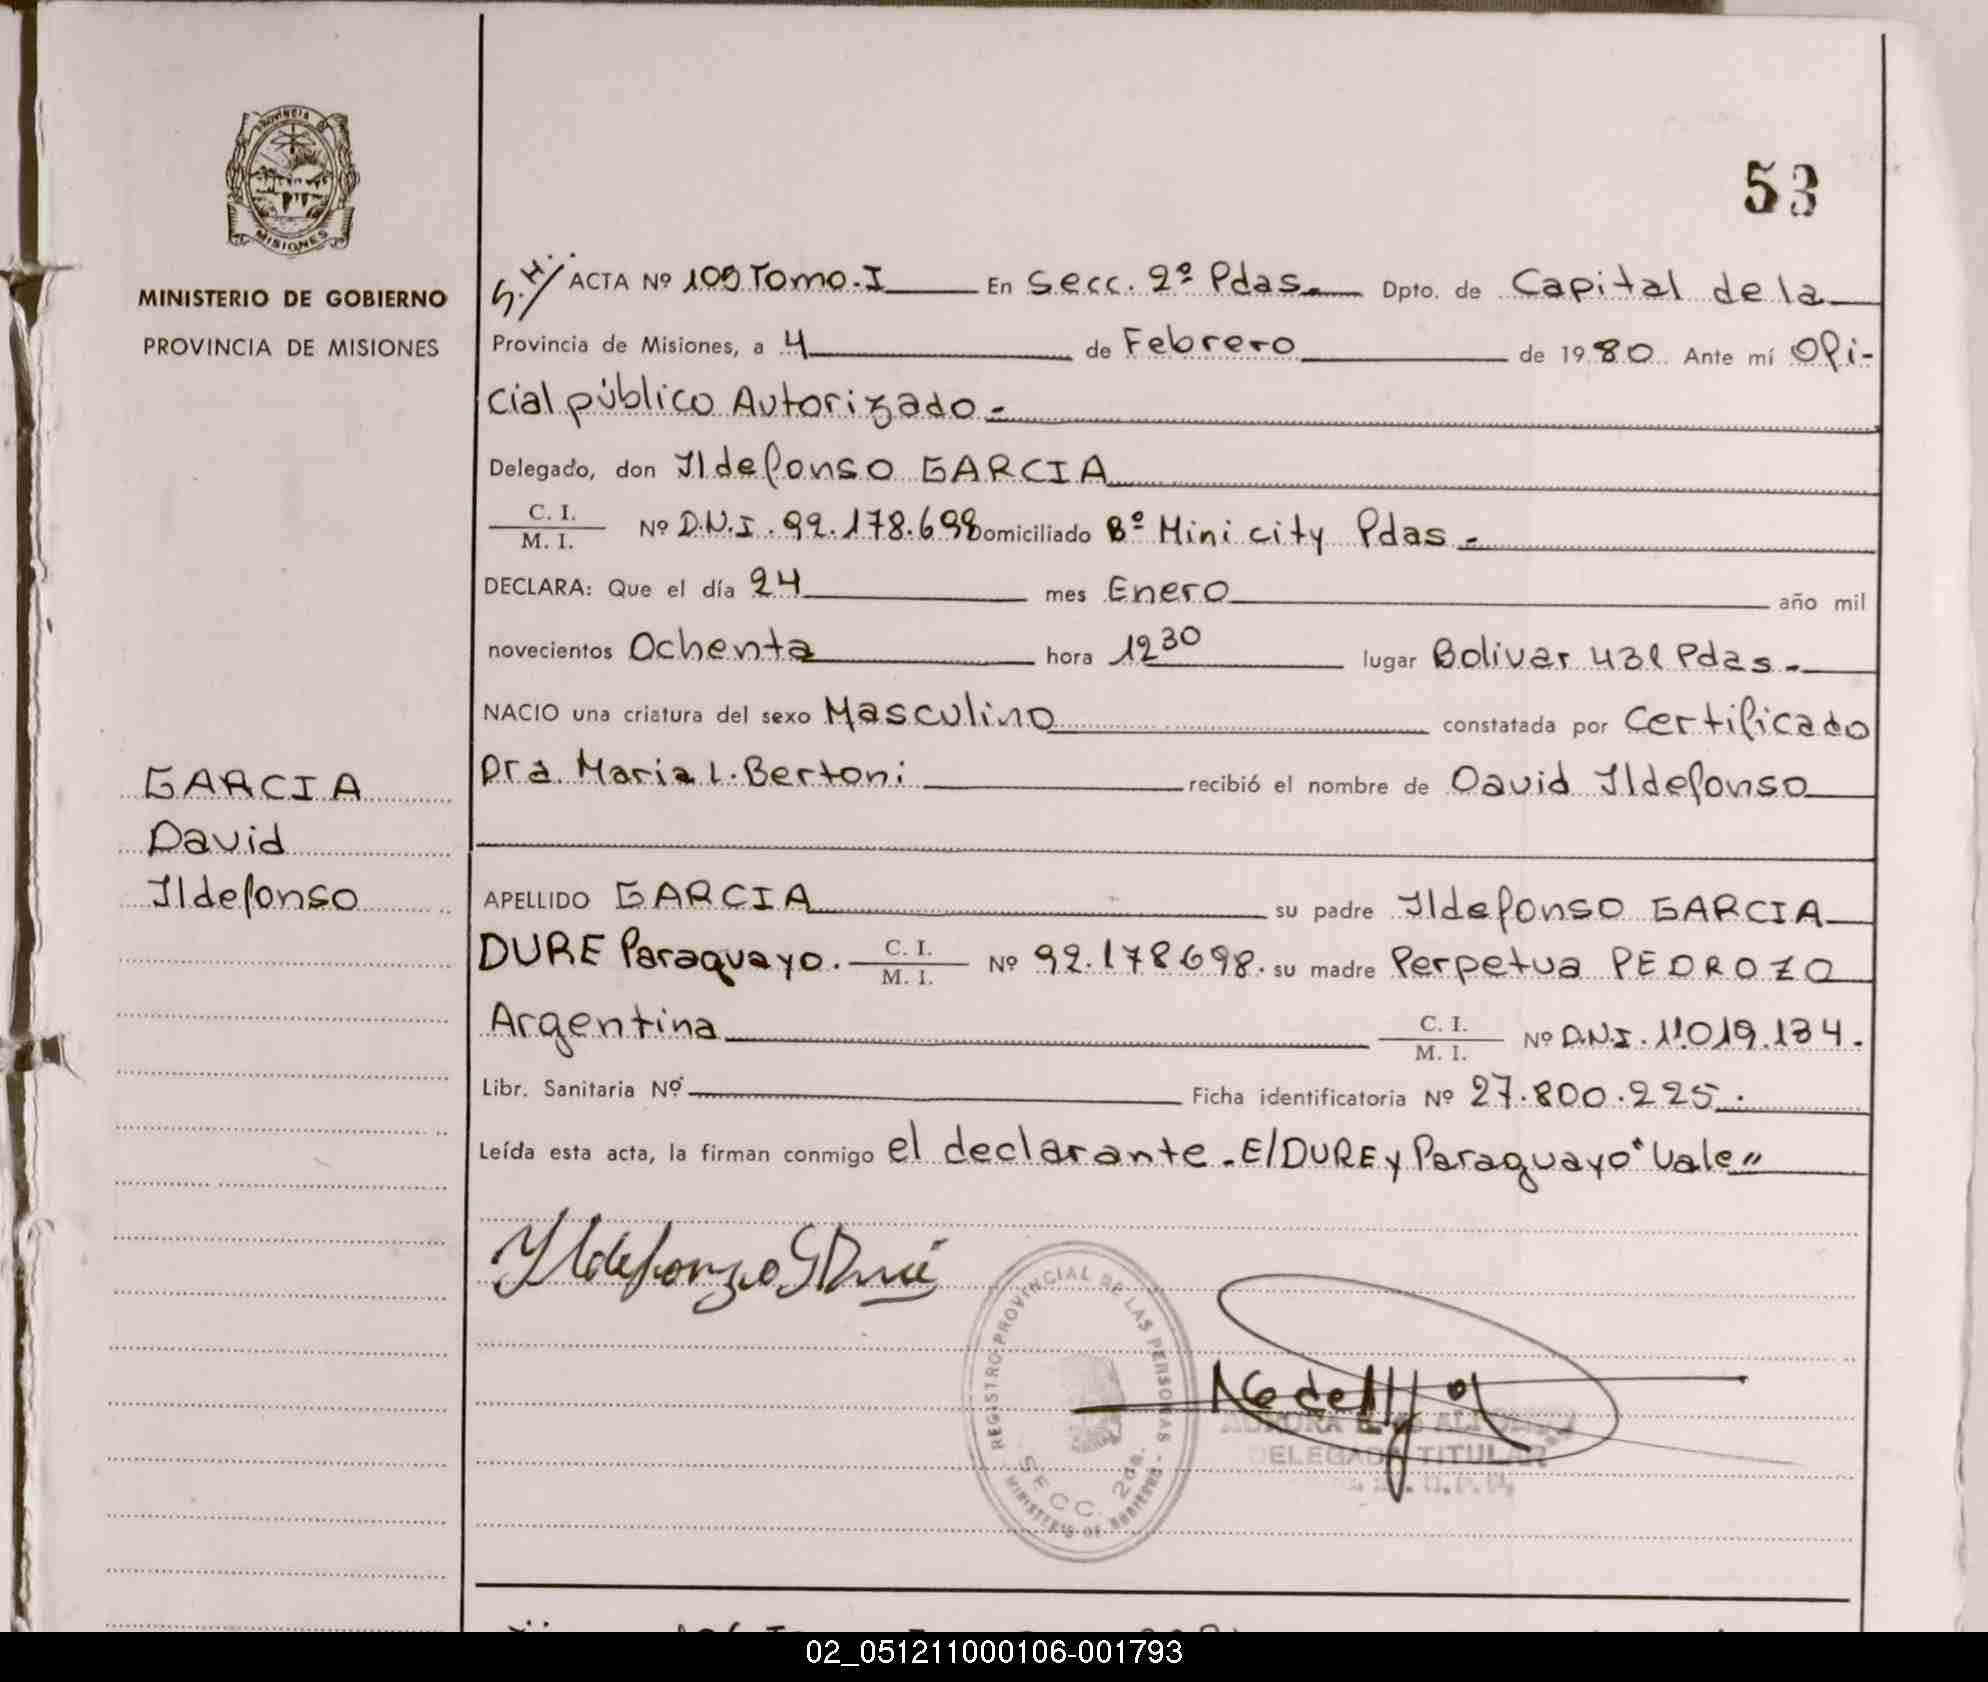 PROVINCIA DE
MISIONES
MINISTERIO DE GOBIERNO
PROVINCIA DE MISIONES
53
S.H./ ACTA Nº 105 Tomo.I En Secc. 2º Pdas. Dpto. de Capital de la
Provincia de Misiones, a 4 de Febrero de 1980 Ante mí Ofi-
cial público Autorizado -
Delegado, don Ildefonso GARCIA
C. I.
M. I. Nº D.N.I. 92.178.698 Domiciliado Bº Mini city Pdas -
DECLARA: Que el día 24 mes Enero año mil
novecientos Ochenta hora 12 30 lugar Bolivar 431 Pdas -
NACIO una criatura del sexo Masculino constatada por Certificado
Dra. Maria L. Bertoni recibió el nombre de David Ildefonso
GARCIA
David
Ildefonso
APELLIDO GARCIA su padre Ildefonso GARCIA
DURE Paraguayo. C. I.
M. I. Nº 92.178698. su madre Perpetua PEDROZO
Argentina C. I.
M. I. Nº D.N.I. 11.019.134.
Libr. Sanitaria Nº Ficha identificatoria Nº 27.800.225.
Leída esta acta, la firman conmigo el declarante - E/DURE y Paraguayo "Vale"
Yldefonzo G Duré
REGISTRO PROVINCIAL DE LAS PERSONAS -
SECC. 2da.
MINISTERIO DE GOBIERNO -
DELEGADA TITULAR
02_051211000106-001793